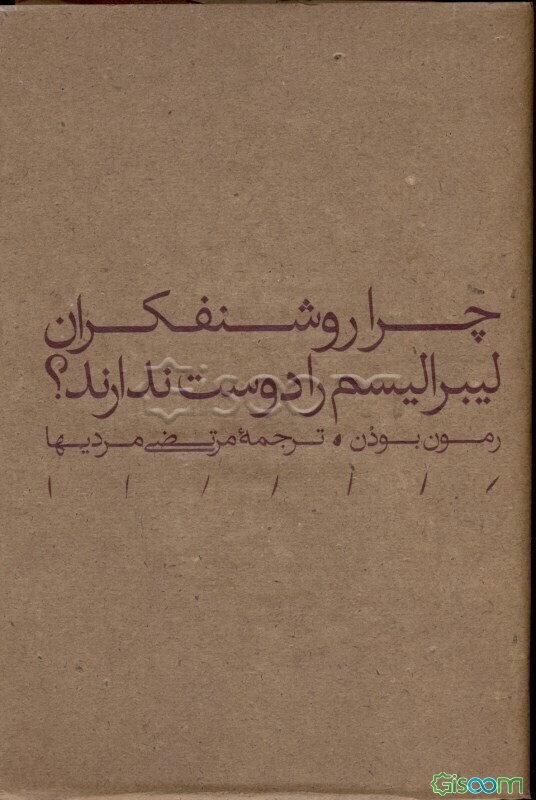 چرا روشنفکران
لیبرالیسم را دوست ندارند؟
رمون بودن • ترجمهٔ مرتضی مردیها
Gisoom
Gisoom